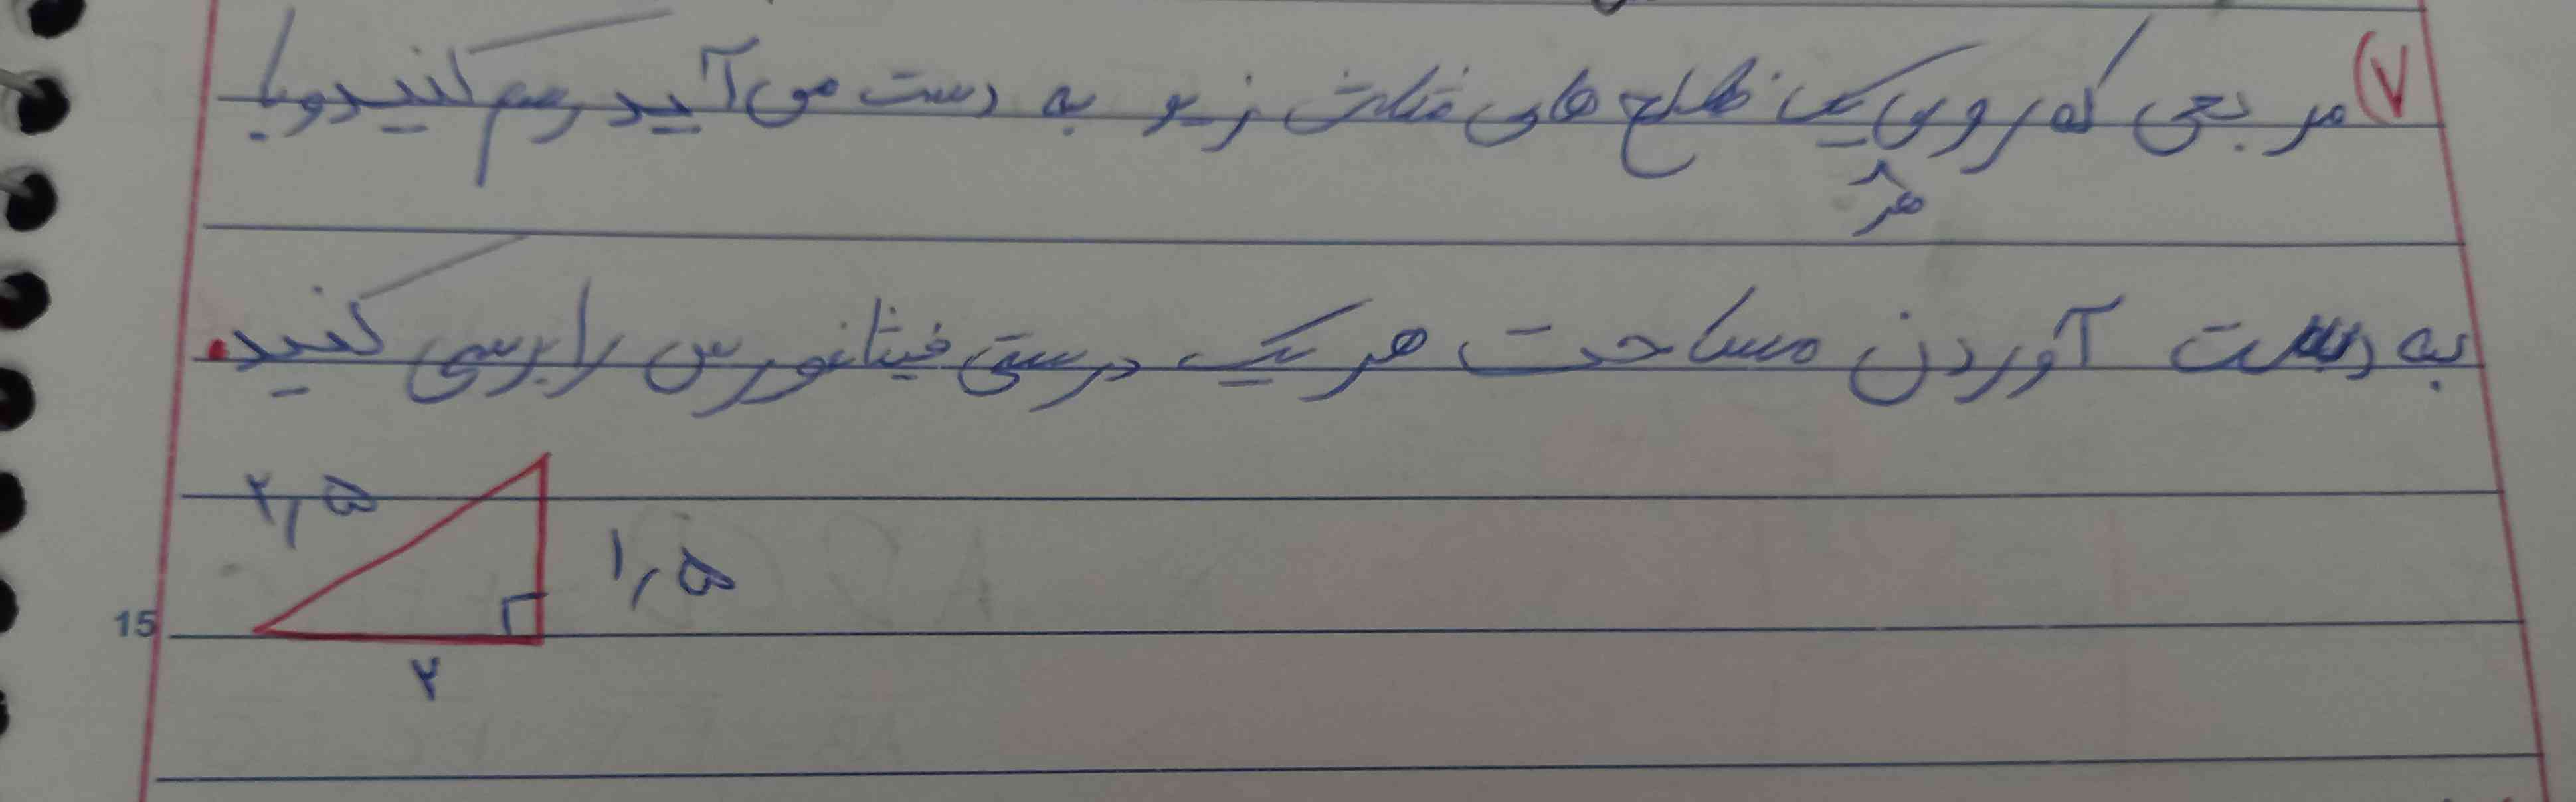 ۷) مربعی که روی یک ضلع های مثلث زیر به دست می آید رسم کنید و با
هر
به دست آوردن مساحت هر یک درستی فیثاغورس را بررسی کنید.
۲,۵
۱,۵
15
۲